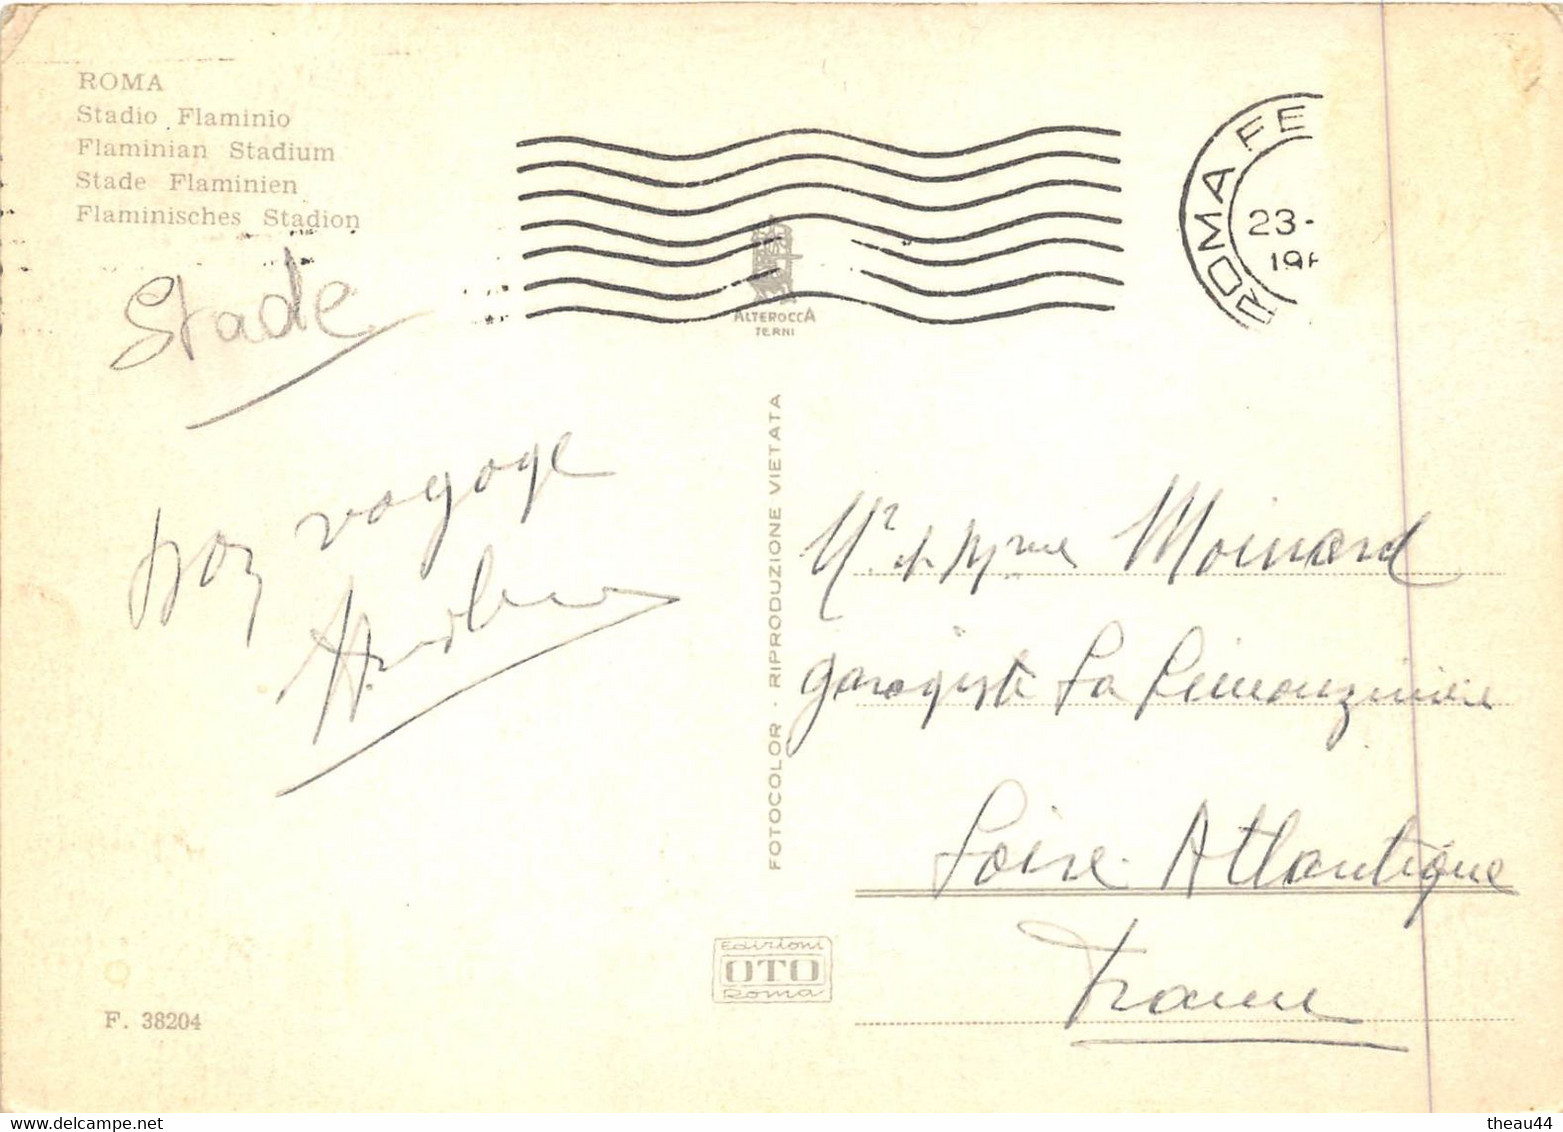 ROMA
Stadio Flaminio
Flaminian Stadium
Stade Flaminien
Flaminisches Stadion
Stade
Bon voyage
ROMA FE
23-
196
ALTEROCCA
TERNI
FOTOCOLOR · RIPRODUZIONE VIETATA
Mr et Mme Moinard
garagiste La Limouzinière
Loire Atlantique
France
Edizioni
OTO
Roma
F. 38204
www.delcampe.net
theau44